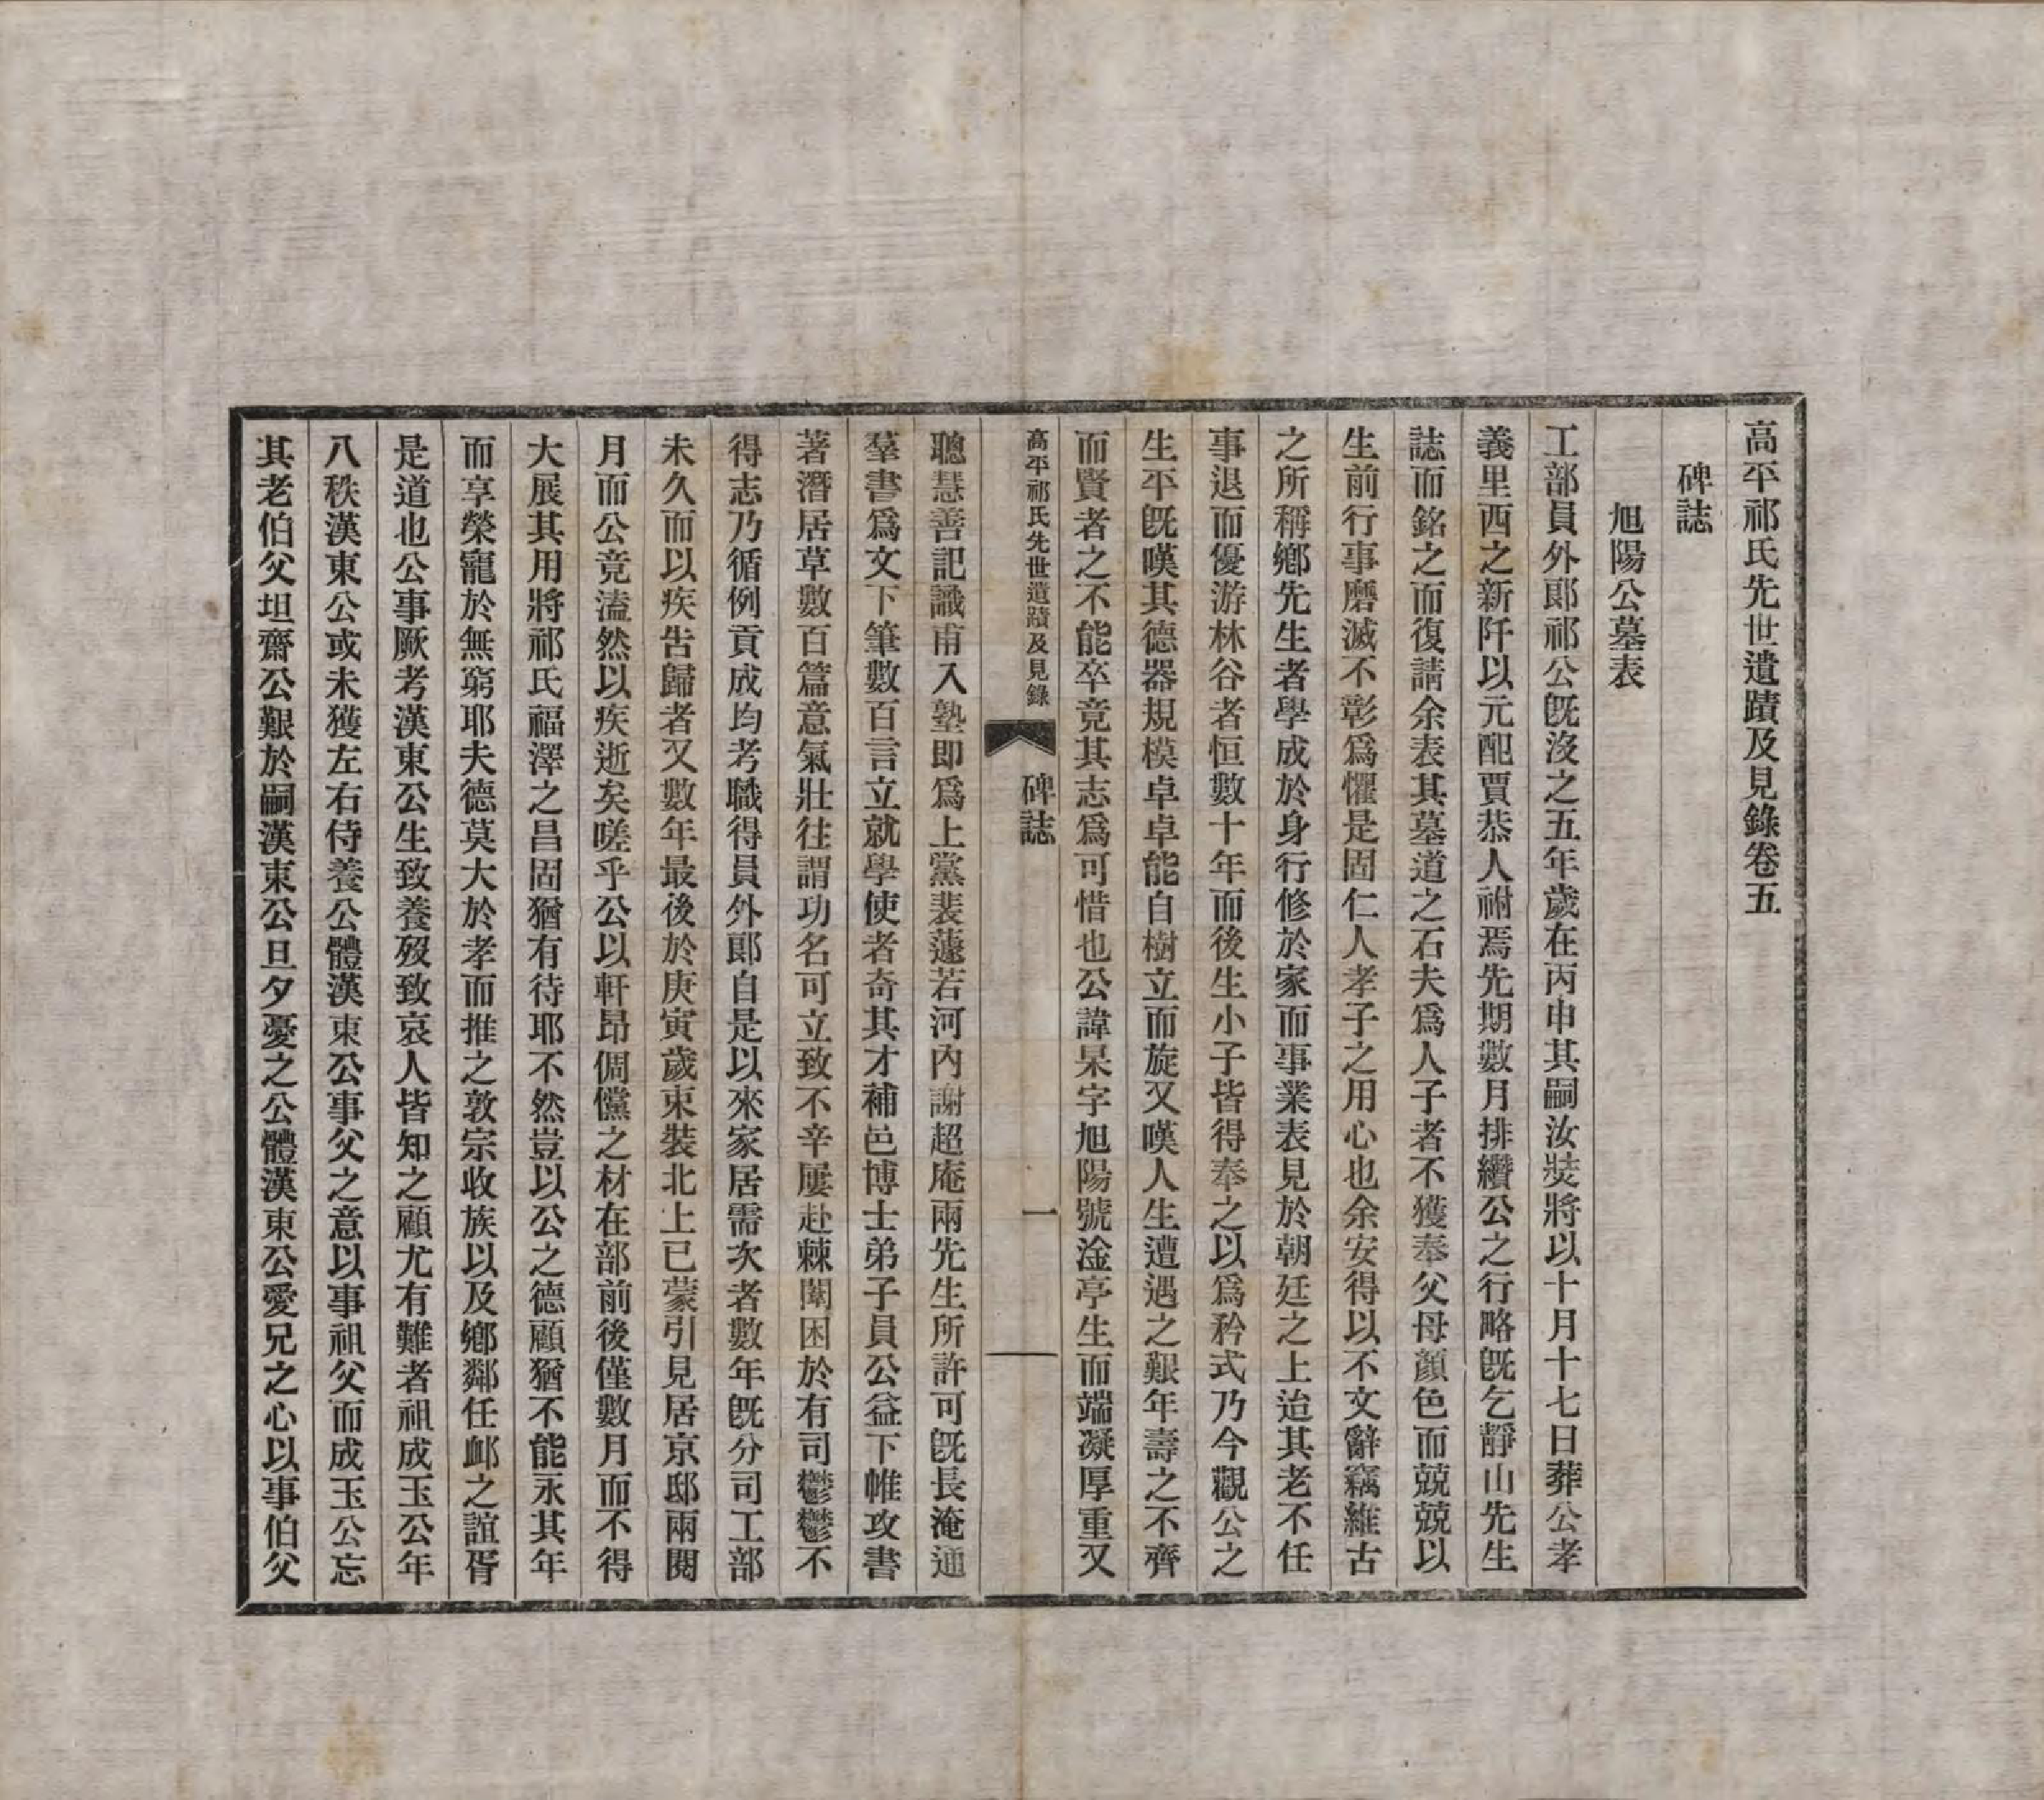 高平祁氏先世遺蹟及見錄卷五
碑誌
旭陽公墓表
工部員外郎祁公旣沒之五年歲在丙申其嗣汝㷿將以十月十七日葬公孝
義里西之新阡以元配賈恭人祔焉先期數月排纘公之行略旣乞靜山先生
誌而銘之而復請余表其墓道之石夫爲人子者不獲奉父母顏色而兢兢以
生前行事磨滅不彰爲懼是固仁人孝子之用心也余安得以不文辭竊維古
之所稱鄉先生者學成於身行修於家而事業表見於朝廷之上迨其老不任
事退而優游林谷者恒數十年而後生小子皆得奉之以爲矜式乃今觀公之
生平旣嘆其德器規模卓卓能自樹立而旋又嘆人生遭遇之艱年壽之不齊
而賢者之不能卒竟其志爲可惜也公諱杲字旭陽號淦亭生而端凝厚重又
高平祁氏先世遺蹟及見錄 碑誌 一
聰慧善記識甫入塾即爲上黨裴蘧若河內謝超庵兩先生所許可旣長淹通
羣書爲文下筆數百言立就學使者奇其才補邑博士弟子員公益下帷攻書
著潛居草數百篇意氣壯往謂功名可立致不辛屢赴棘闈困於有司鬱鬱不
得志乃循例貢成均考職得員外郎自是以來家居需次者數年旣分司工部
未久而以疾告歸者又數年最後於庚寅歲束裝北上已蒙引見居京邸兩閱
月而公竟溘然以疾逝矣嗟乎公以軒昂倜儻之材在部前後僅數月而不得
大展其用將祁氏福澤之昌固猶有待耶不然豈以公之德顧猶不能永其年
而享榮寵於無窮耶夫德莫大於孝而推之敦宗收族以及鄉鄰任卹之誼胥
是道也公事厥考漢東公生致養歿致哀人皆知之顧尤有難者祖成玉公年
八秩漢東公或未獲左右侍養公體漢東公事父之意以事祖父而成玉公忘
其老伯父坦齋公艱於嗣漢東公旦夕憂之公體漢東公愛兄之心以事伯父